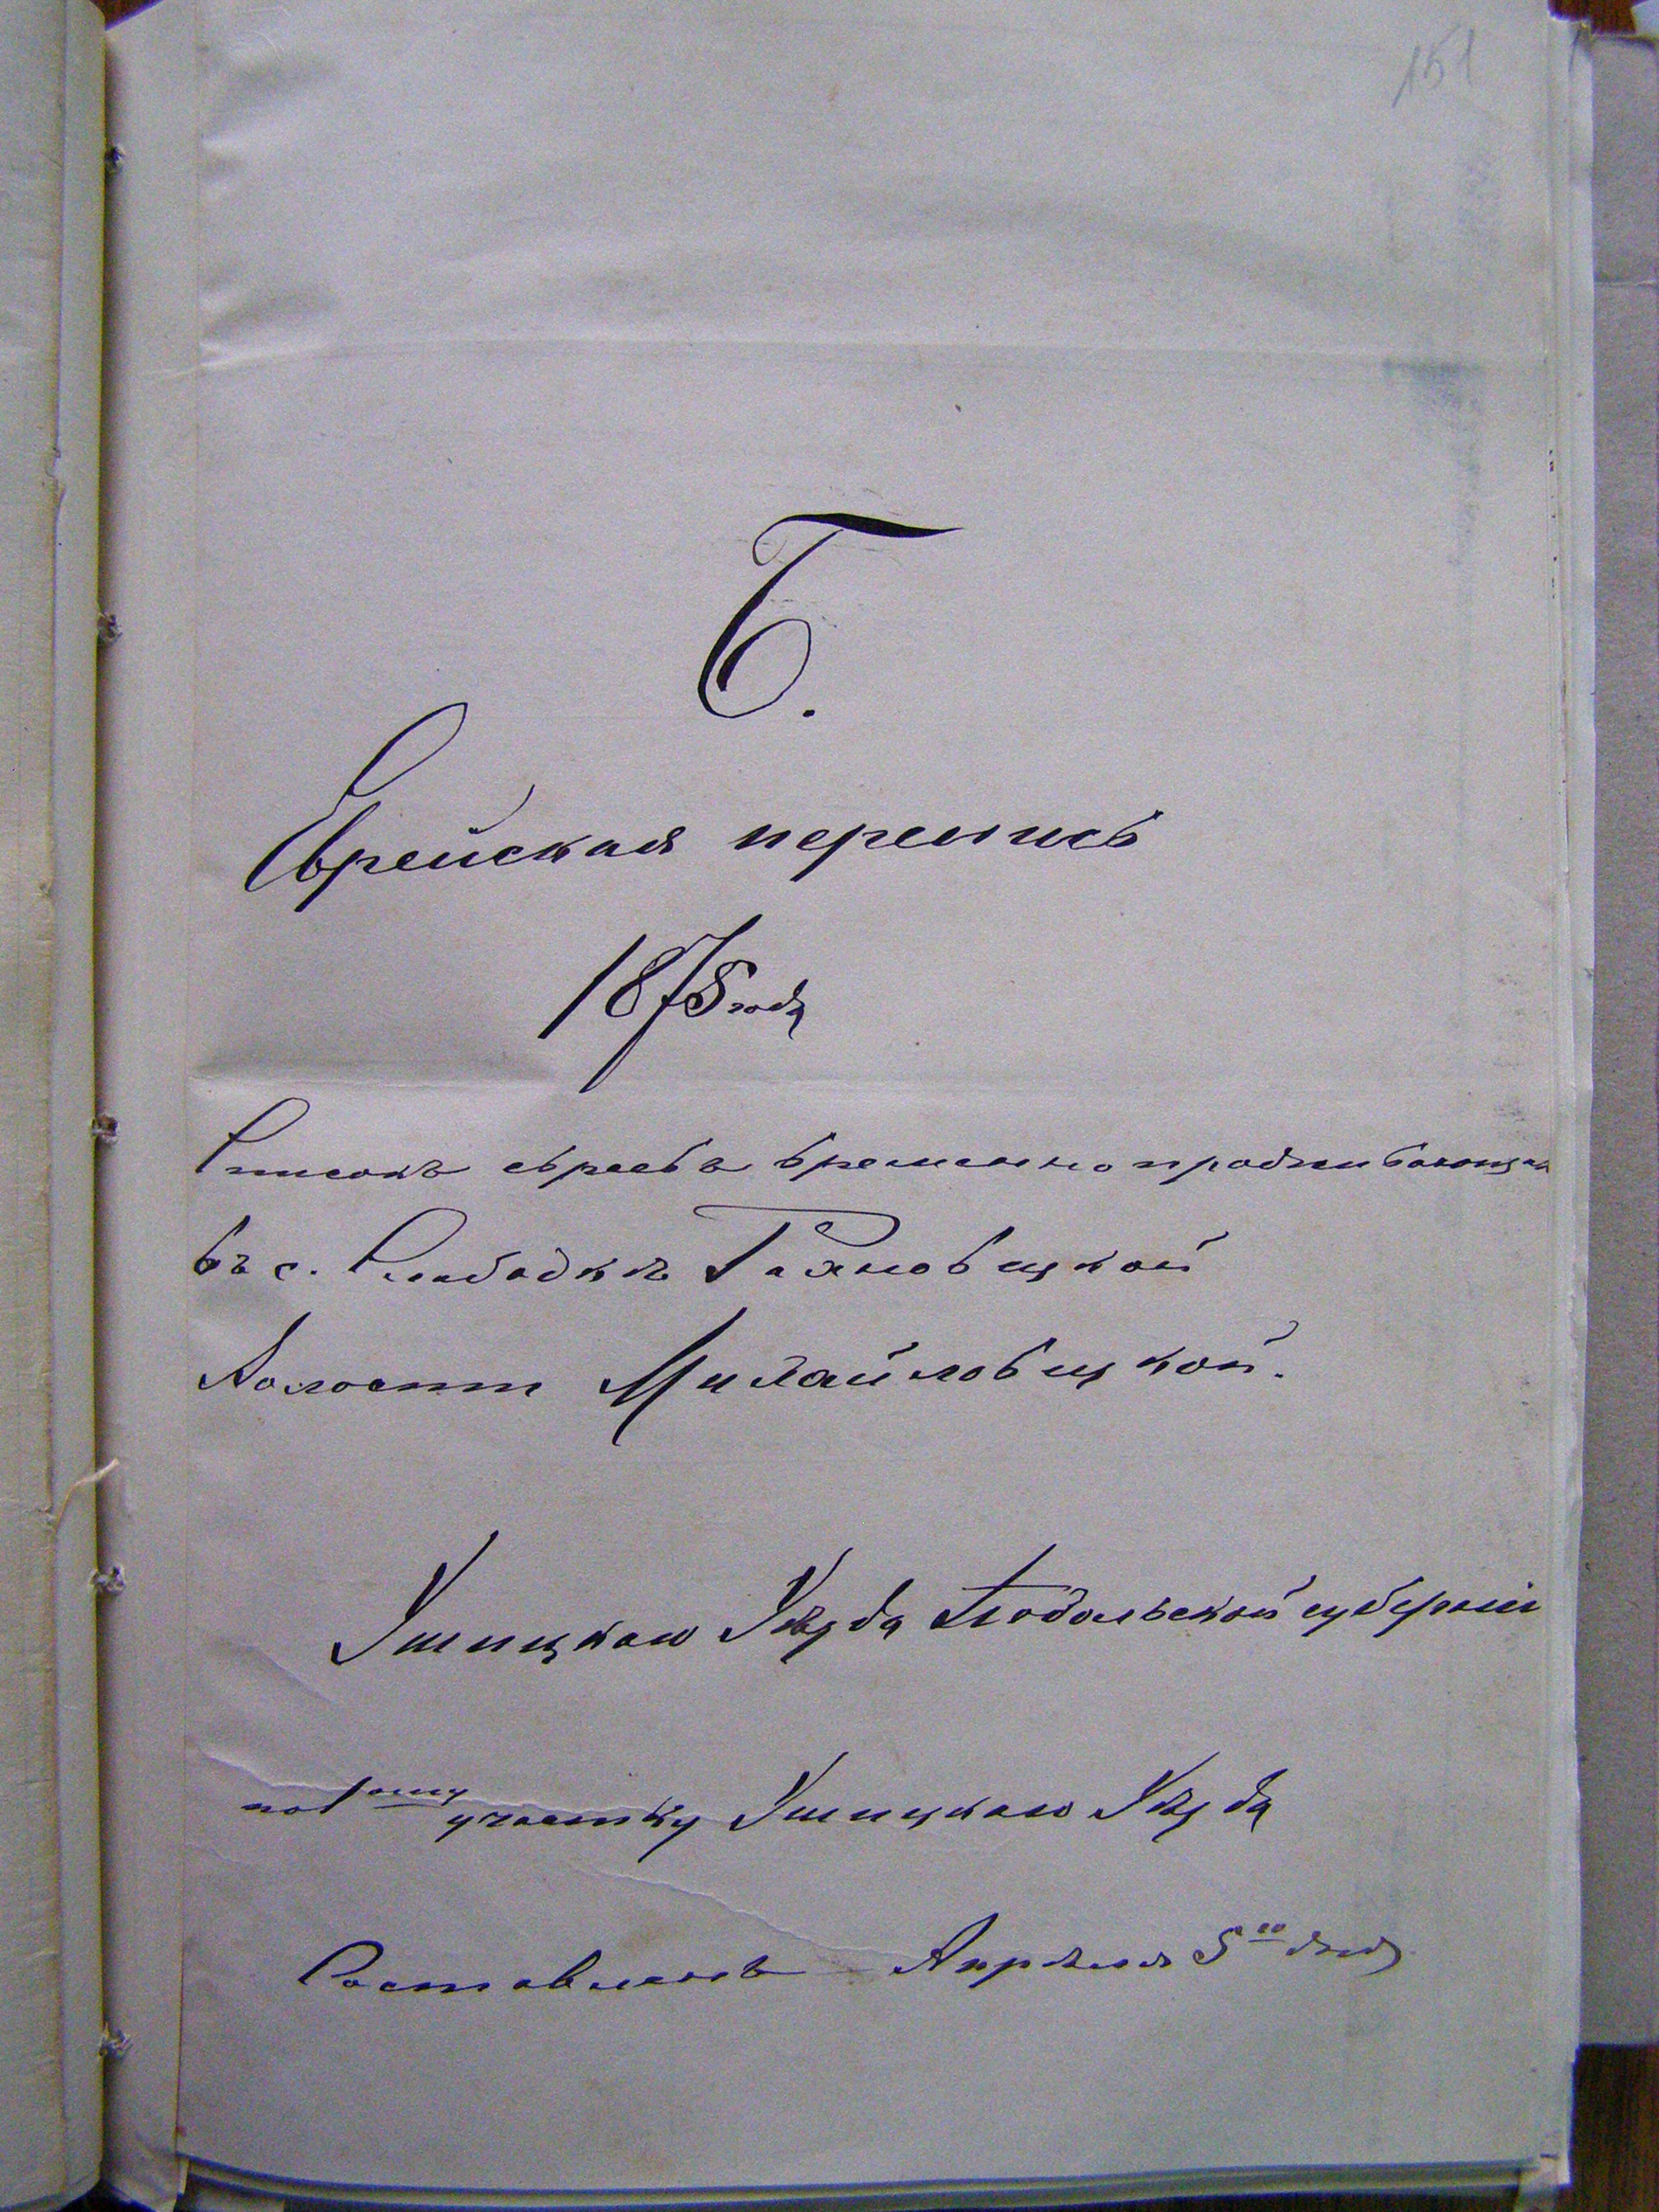 151
Б.
Еврейская перепись
1875 года
Списокъ евреевъ временно проживающихъ
въ с. Слободкѣ Рахновецкой
Волости Михайловецкой.
Ушицкаго Уѣзда Подольской губерніи
по 1ому участку Ушицкаго Уѣзда
Составленъ Апрѣля 5го дня